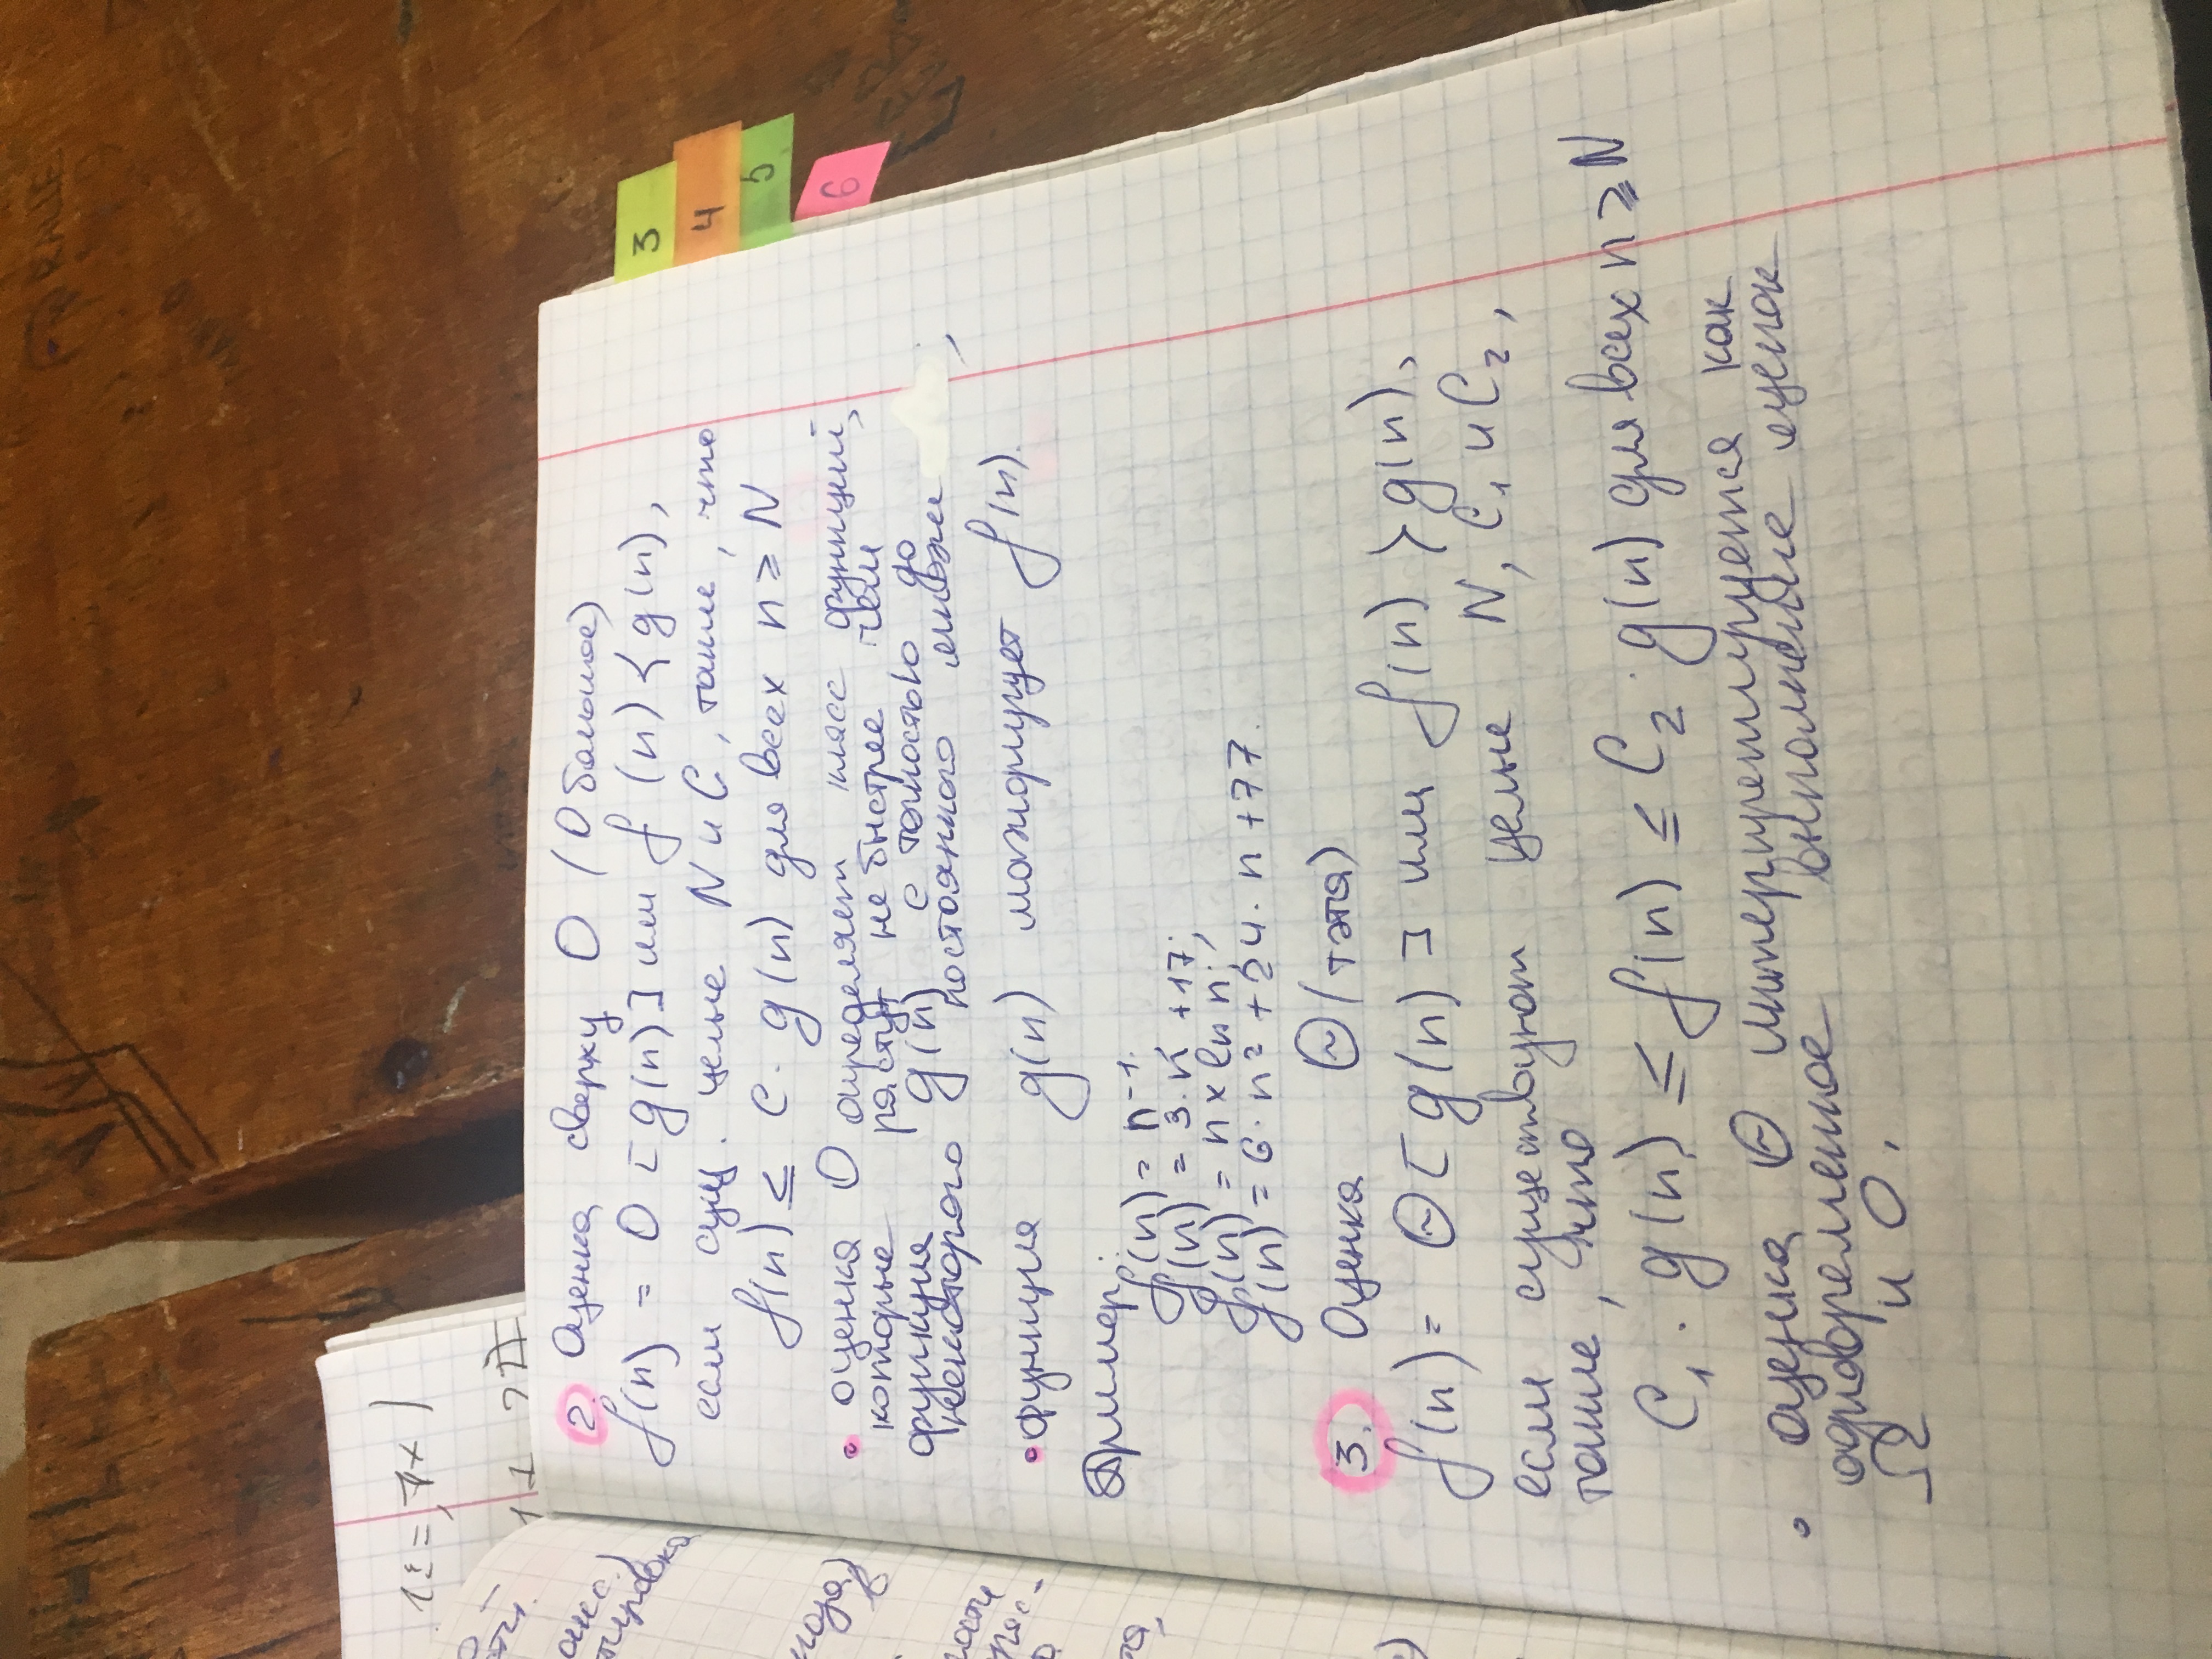 2. Оценка сверху O (O большое)
f(n) = O [g(n)] или f(n) ≺ g(n),
если сущ. целые N и C, такие, что
f(n) ≤ C · g(n) для всех n ≥ N
• оценка O определяет класс функций,
которые растут не быстрее чем
функция g(n) с точностью до
некоторого постоянного множи ,
• функция g(n) мажорирует f(n).
Пример:
f(n) = n⁻¹;
f(n) = 3·n + 17;
f(n) = n × ln n;
f(n) = 6·n² + 24·n + 77.
3. Оценка Θ (тэтя)
f(n) = Θ [g(n)] или f(n) ≻ g(n),
если существуют целые N, C₁ и C₂,
такие, что
C₁ · g(n) ≤ f(n) ≤ C₂ · g(n) для всех n ≥ N
• оценка Θ интерпретируется как
одновременное выполнение оценок
Ω и O.
3
4
5
6